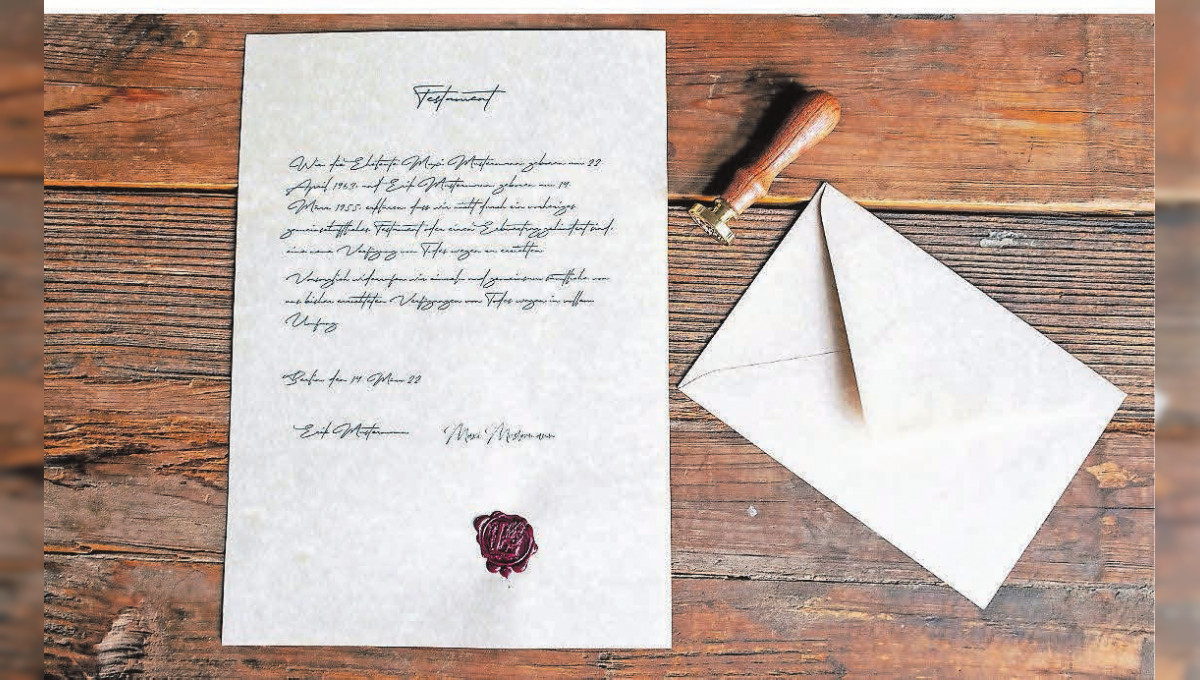 Testament
Wir die Eheleute Maxi Mustermann geboren am 22.
April 1969. und Erik Mustermann geboren am 19.
März 1955. erklären dass wir nicht durch ein vorheriges
gemeinschaftliches Testament oder einen Erbvertrag gehindert sind,
eine neue Verfügung von Todes wegen zu errichten.
Vorsorglich widerrufen wir einzeln und gemeinsam sämtliche von
uns bisher errichteten Verfügungen von Todes wegen in vollem
Umfang.
Berlin den 14. März 22
Erik Mustermann Maxi Mustermann